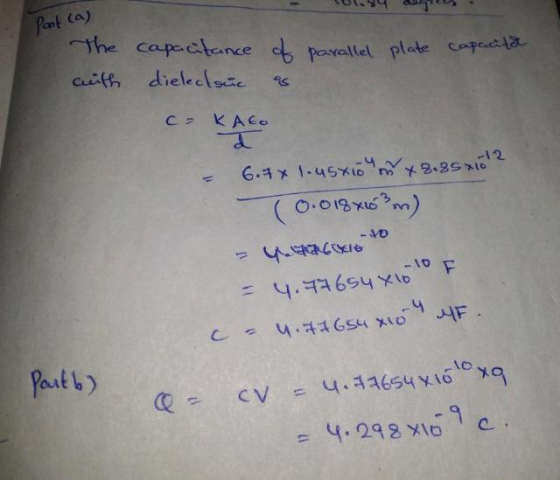 = 101.84 degrees.
Part (a)
The capacitance of parallel plate capacitor
with dielectric is
C = KAϵ₀
d
= 6.7 × 1.45×10⁻⁴ m² × 8.85×10⁻¹²
(0.018×10⁻³ m)
=
= 4.77654 ×10⁻¹⁰ F
C = 4.77654 ×10⁻⁴ μF.
Part b)
Q = CV = 4.77654×10⁻¹⁰ ×9
= 4.298×10⁻⁹ C.